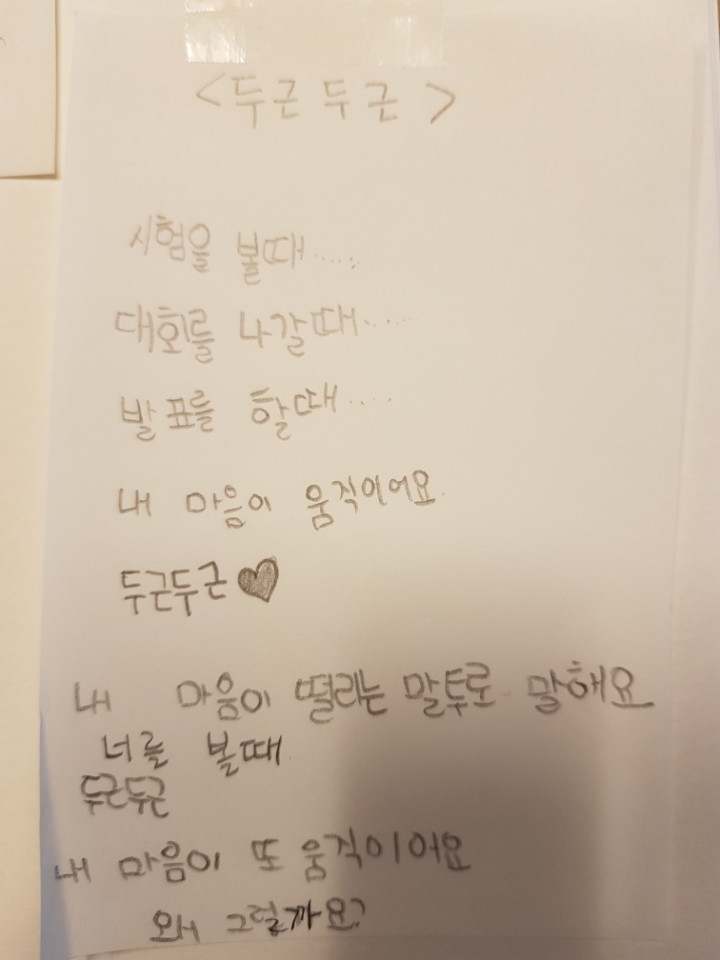 <두근두근>
시험을 볼때.....
대회를 나갈때.....
발표를 할때....
내 마음이 움직이어요
두근두근♥
내 마음이 떨리는 말투로 말해요
너를 볼때
두근두근
내 마음이 또 움직이어요
왜 그럴까요?